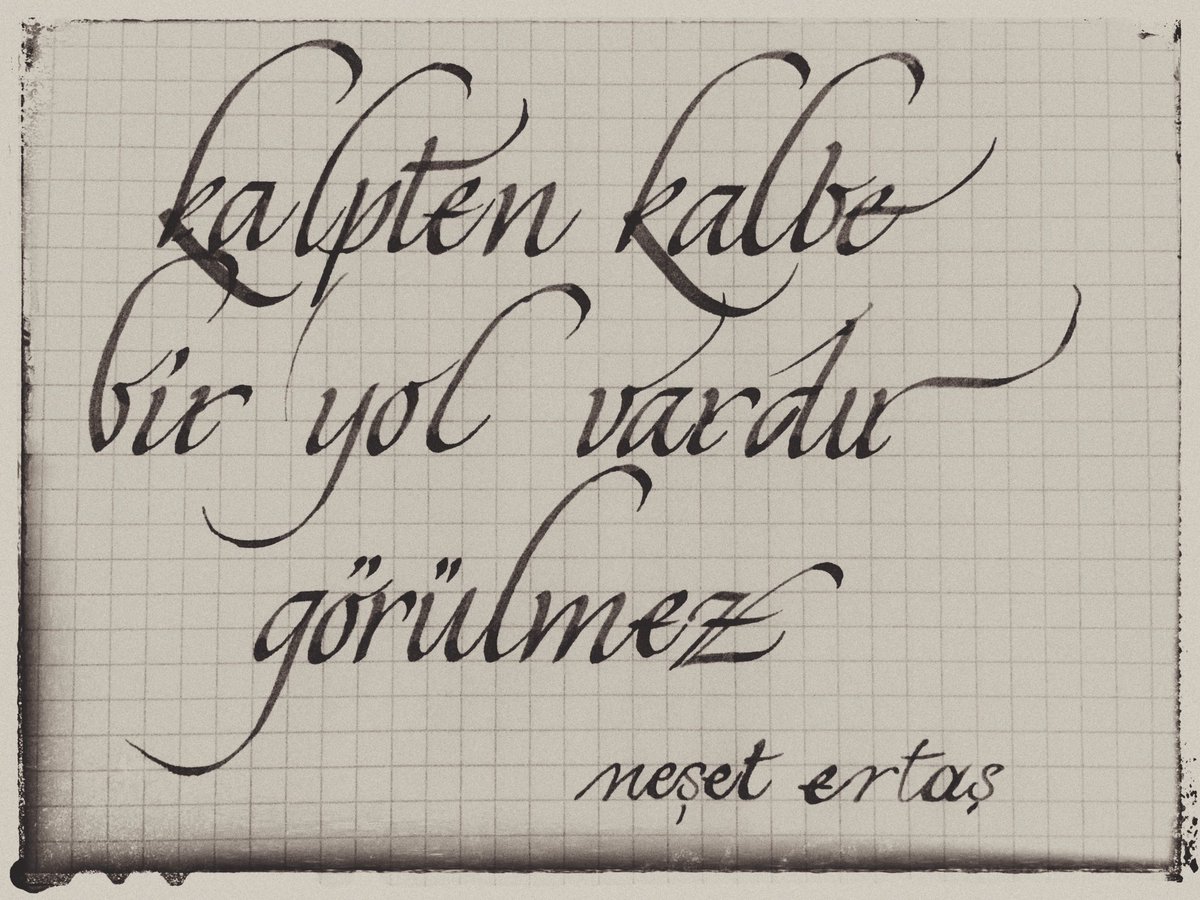 kalpten kalbe
bir yol vardır
görülmez
neşet ertaş